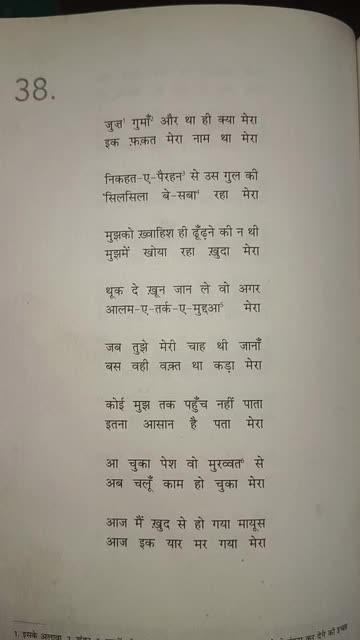 38.
जुज़¹ गुमाँ² और था ही क्या मेरा
इक फ़क़त मेरा नाम था मेरा
निकहत-ए-पैरहन³ से उस गुल की
'सिलसिला बे-सबा⁴ रहा मेरा
मुझको ख़्वाहिश ही ढूँढ़ने की न थी
मुझमें खोया रहा ख़ुदा मेरा
थूक दे ख़ून जान ले वो अगर
आलम-ए-तर्क-ए-मुद्दआ⁵ मेरा
जब तुझे मेरी चाह थी जानाँ
बस वही वक़्त था कड़ा मेरा
कोई मुझ तक पहुँच नहीं पाता
इतना आसान है पता मेरा
आ चुका पेश वो मुरव्वत⁶ से
अब चलूँ काम हो चुका मेरा
आज मैं ख़ुद से हो गया मायूस
आज इक यार मर गया मेरा
1. इसके अलावा